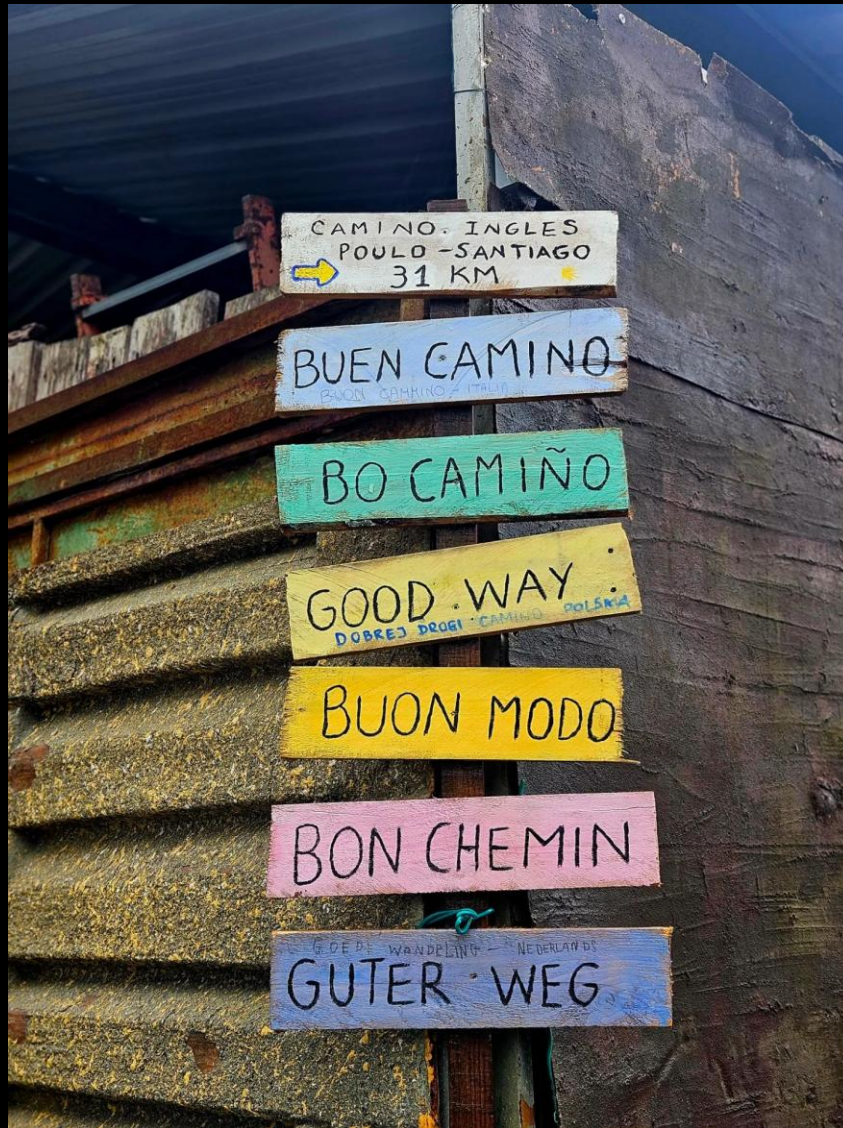 CAMINO. INGLES
POULO - SANTIAGO
31 KM
BUEN CAMINO
BUON CAMMINO - ITALIA
BO CAMIÑO
GOOD WAY
DOBREJ DROGI CAMINO POLSKA
BUON MODO
BON CHEMIN
GOEDE WANDELING - NEDERLANDS
GUTER WEG